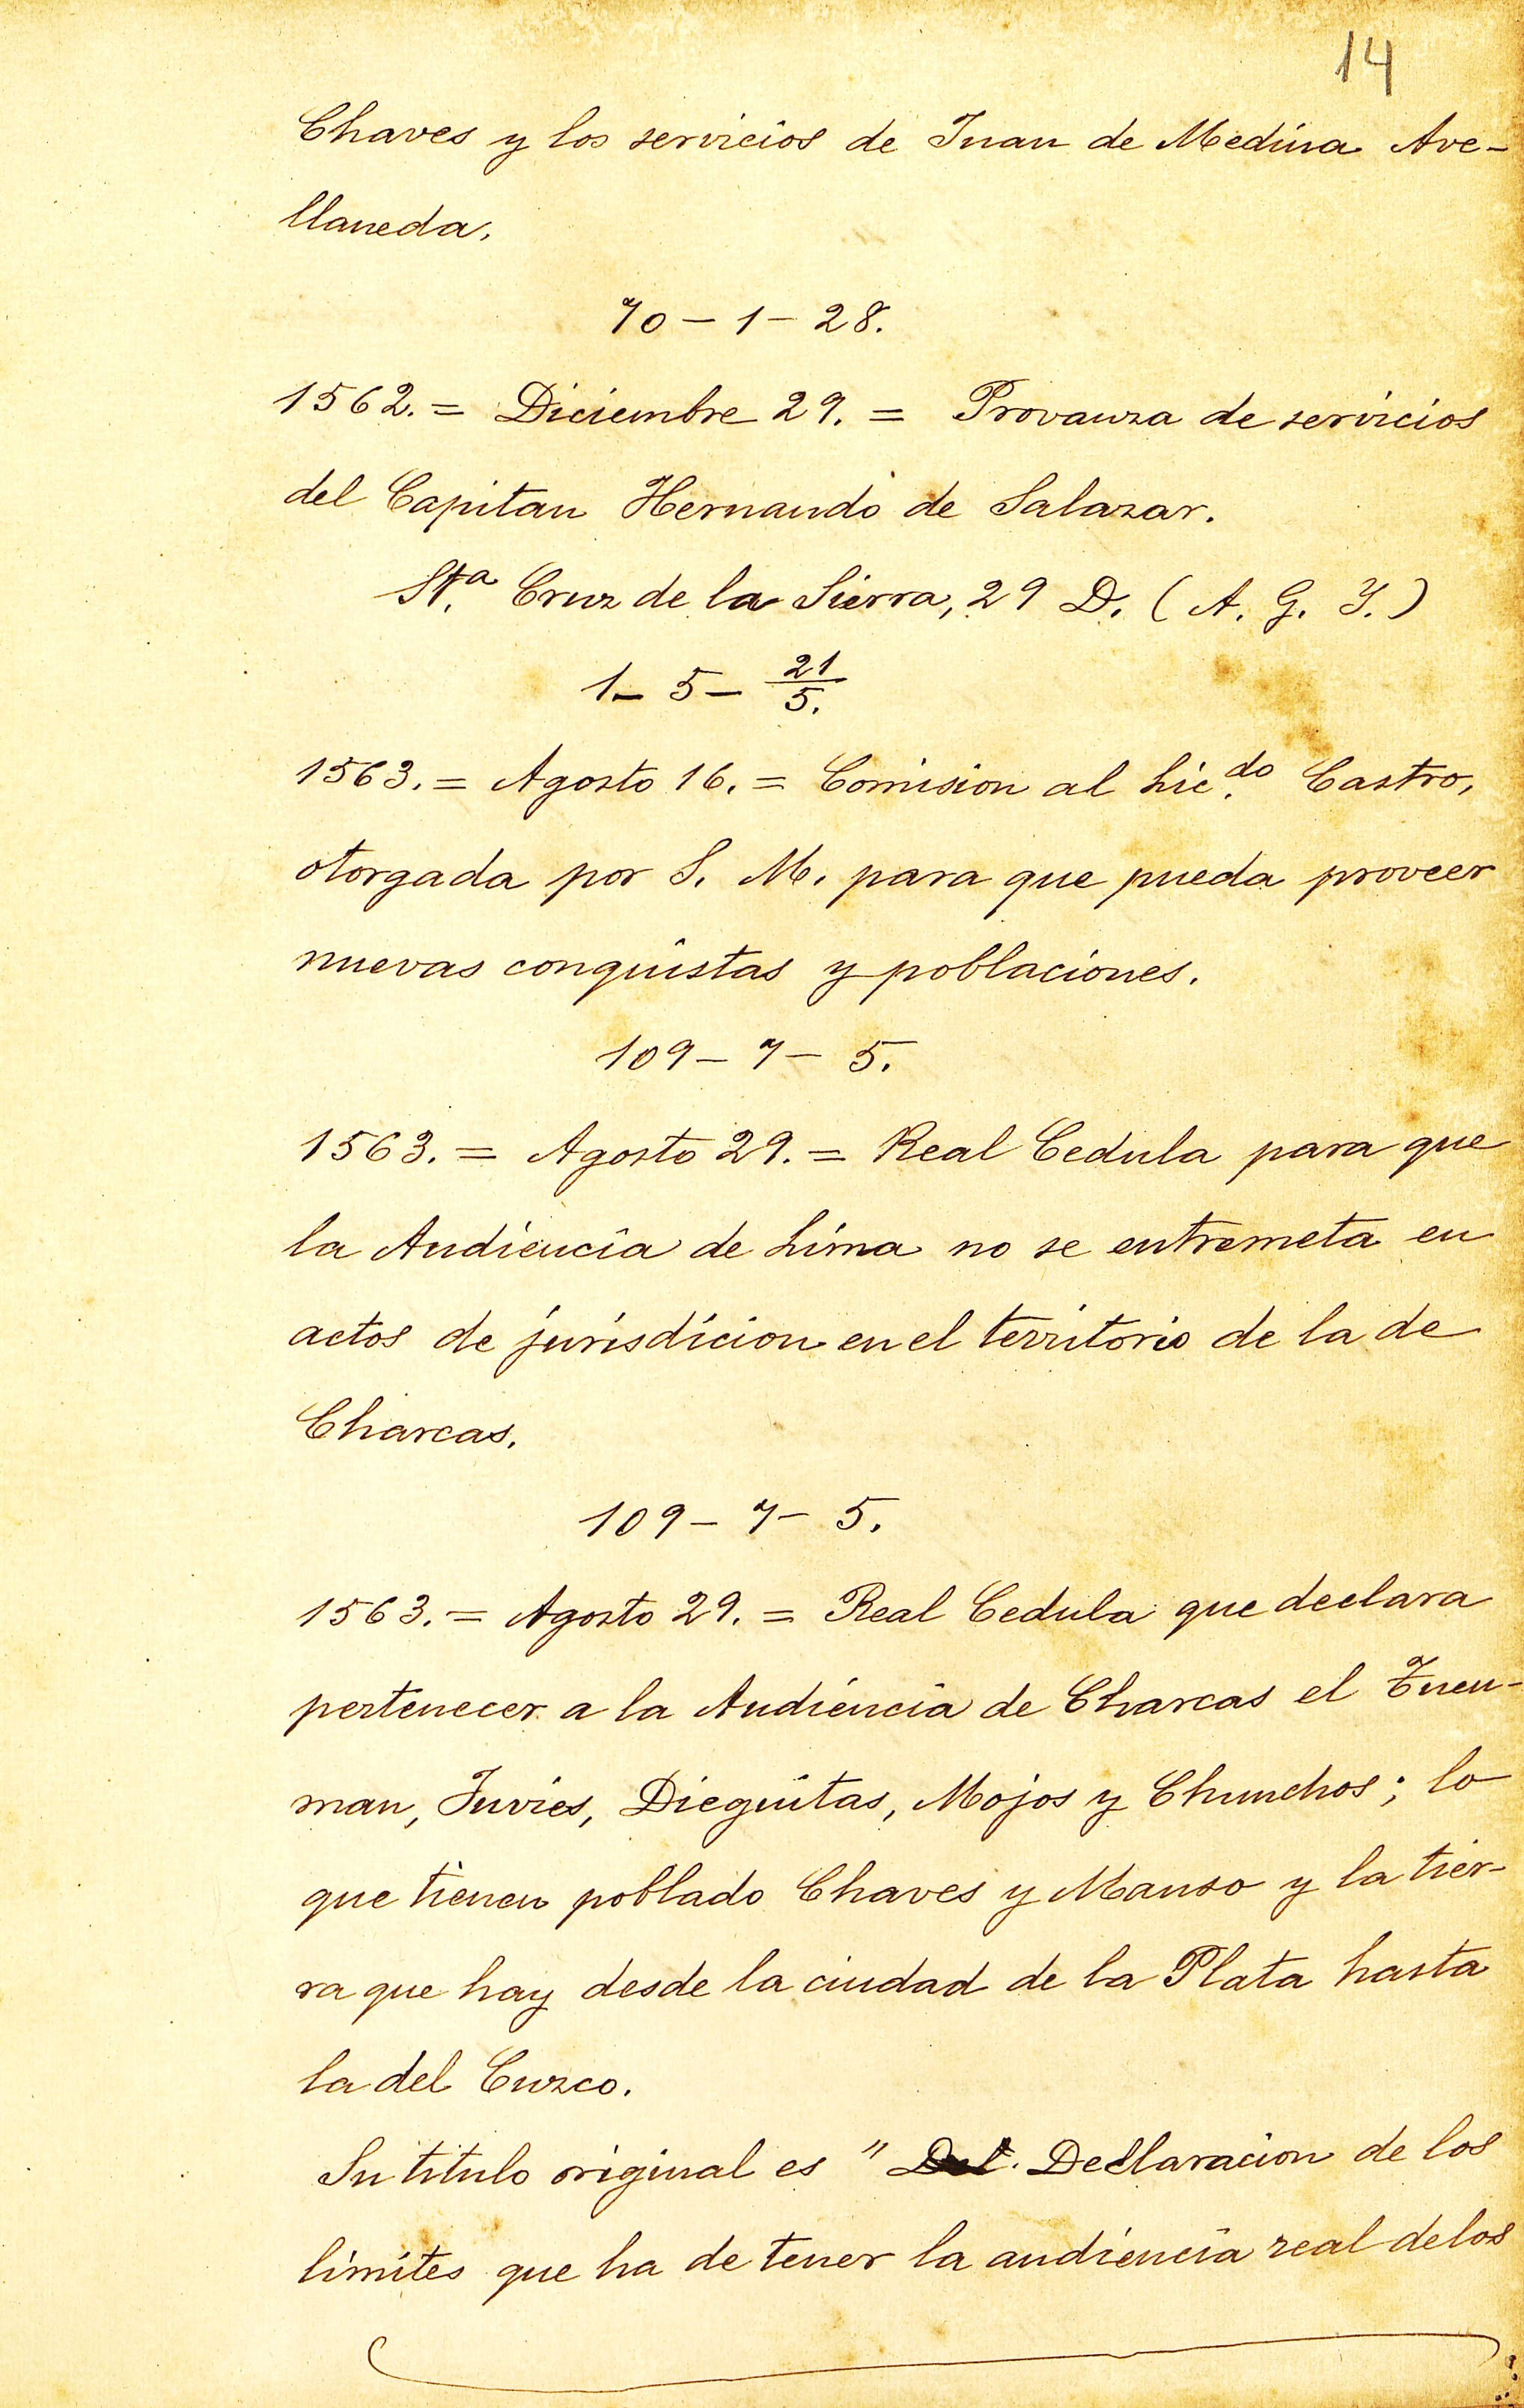 14
Chaves y los servicios de Juan de Medina Ave-
llaneda.
70 - 1 - 28.
1562. = Diciembre 29. = Provanza de servicios
del Capitan Hernando de Salazar.
Sta. Cruz de la Sierra, 29 D. (A. G. Y.)
1 - 5 - 21/5.
1563. = Agosto 16. = Comision al Licdo. Castro,
otorgada por S. M. para que pueda proveer
nuevas conquistas y poblaciones.
109 - 7 - 5.
1563. = Agosto 29. = Real Cedula para que
la Audiencia de Lima no se entremeta en
actos de jurisdicion en el territorio de la de
Charcas.
109 - 7 - 5.
1563. = Agosto 29. = Real Cedula que declara
pertenecer a la Audiencia de Charcas el Tucu-
man, Juries, Dieguitas, Mojos y Chunchos; lo
que tienen poblado Chaves y Manso y la tier-
ra que hay desde la ciudad de la Plata hasta
la del Cuzco.
Su titulo original es " Declaracion de los
limites que ha de tener la audiencia real de los